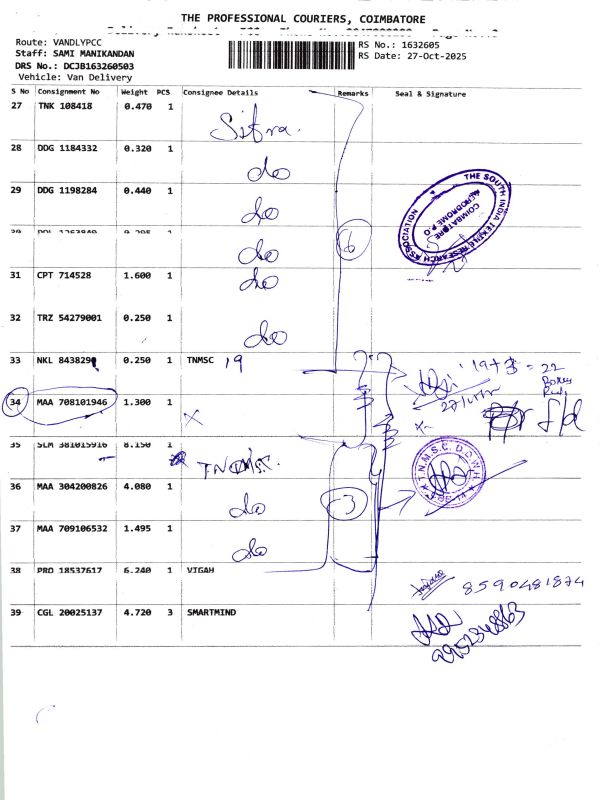 THE PROFESSIONAL COURIERS, COIMBATORE
Route: VANDLYPCC
Staff: SAMI MANIKANDAN
DRS No.: DCJB163260503
Vehicle: Van Delivery
RS No.: 1632605
RS Date: 27-Oct-2025
S No Consignment No Weight PCS Consignee Details Remarks Seal & Signature
27 TNK 108418 0.470 1 Sitra.
28 DDG 1184332 0.320 1 do
29 DDG 1198284 0.440 1 do
1 do
6
THE SOUTH INDIA TEXTILE RESEARCH ASSOCIATION
COIMBATORE
AERODROME P.O
31 CPT 714528 1.600 1 do
32 TRZ 54279001 0.250 1 do
33 NKL 8438291 0.250 1 TNMSC 19
19+3 = 22
Boxes
34 MAA 708101946 1.300 1 X
27/10/25
X
f/d
35 SLM 381015916 8.150 1
T.N.M.S.C. D.D.W.H.
36 MAA 304200826 4.080 1 do
3
37 MAA 709106532 1.495 1 do
38 PRO 18537617 6.240 1 VIGAH
8590481874
39 CGL 20025137 4.720 3 SMARTMIND